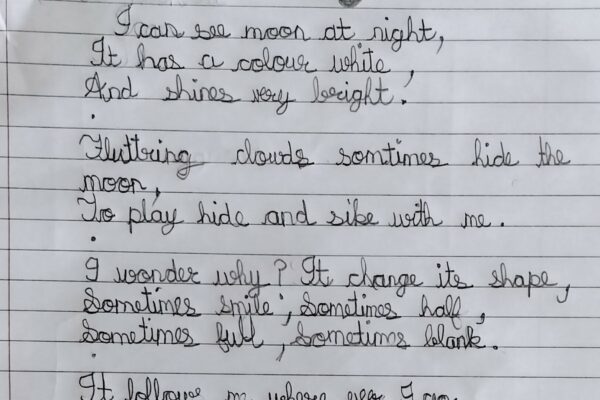 I can see moon at night,
It has a colour white,
And shines very bright.
Fluttring clouds somtimes hide the
moon,
To play hide and sike with me.
I wonder why? It change its shape,
Sometimes smile, Sometimes half,
Sometimes full, Sometims blank.
It follows m where ever I go.